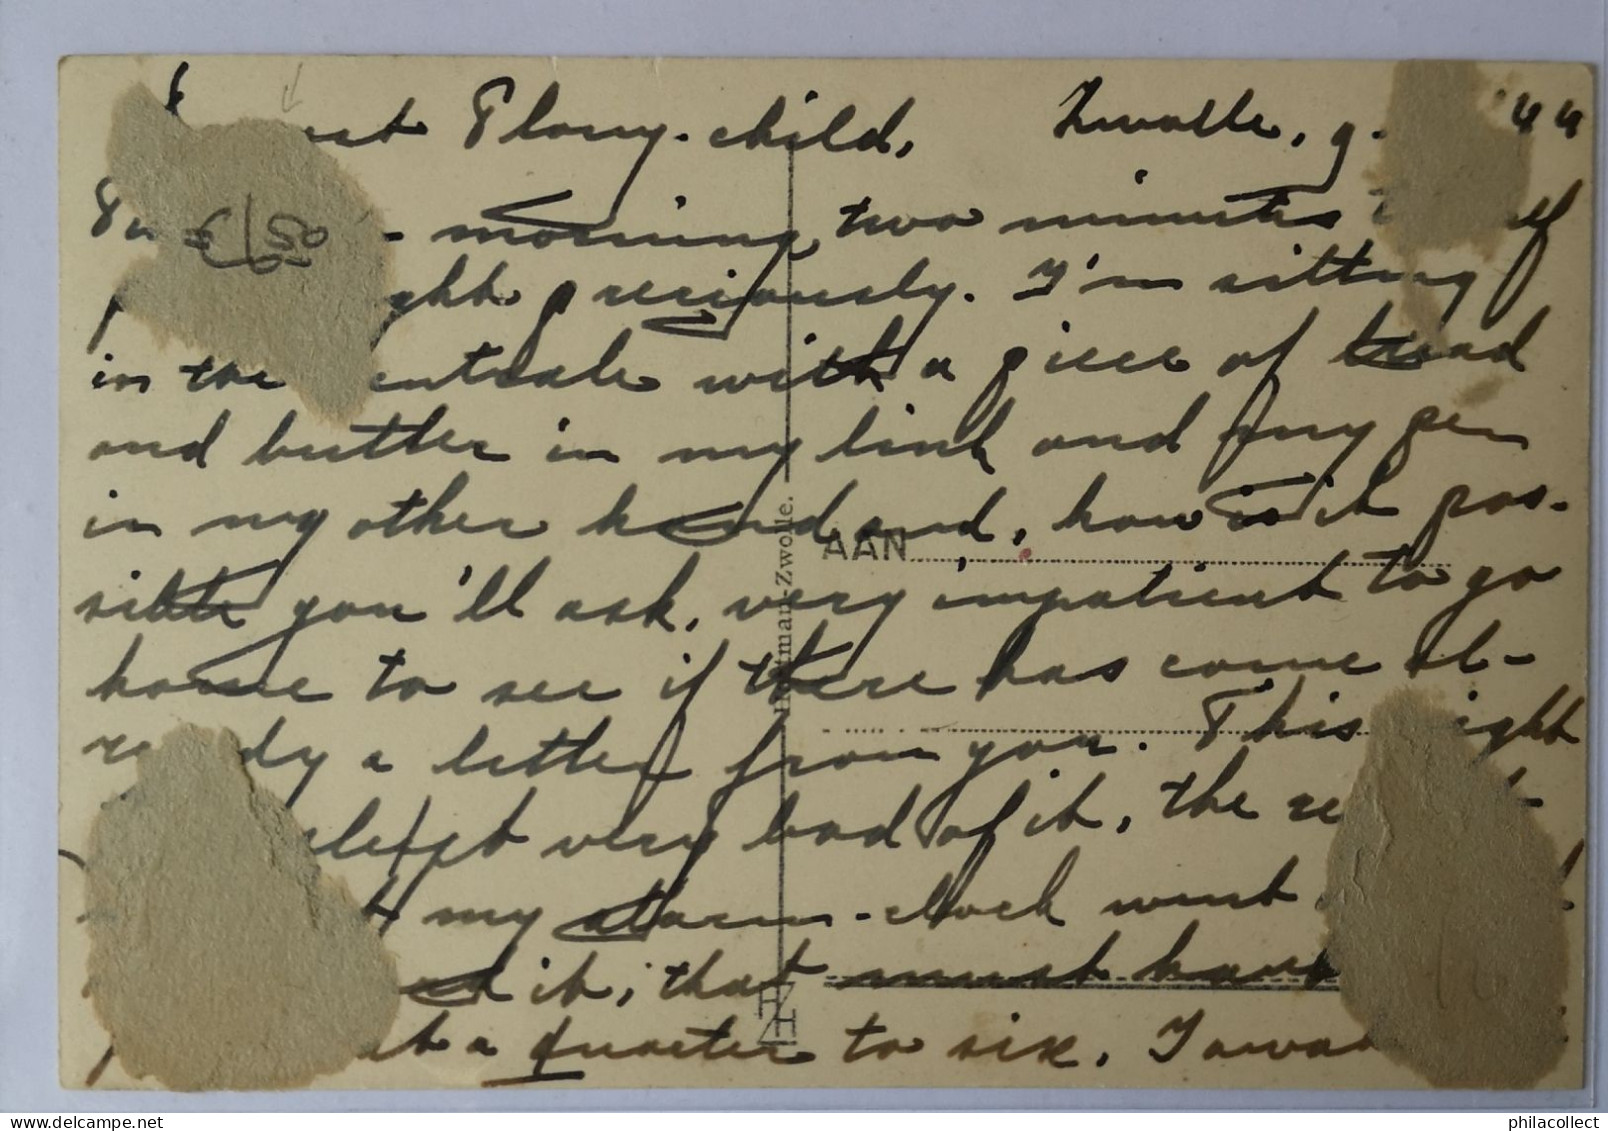 Flory-child, Zwolle, 9. '44
€ 6,50
morning, two minutes
preciously. I'm sitting
in the with a piece of bread
and butter in my link and my pen
in my other hand and, how is it pos-
sible you'll ask, very impatient to go
home to see if there has come al-
ready a letter from you. This
slept very bad of it, the
my alarm-clock went
it, that must have
a quarter to six.
AAN
Zwolle.
HZ
ZH
philacollect